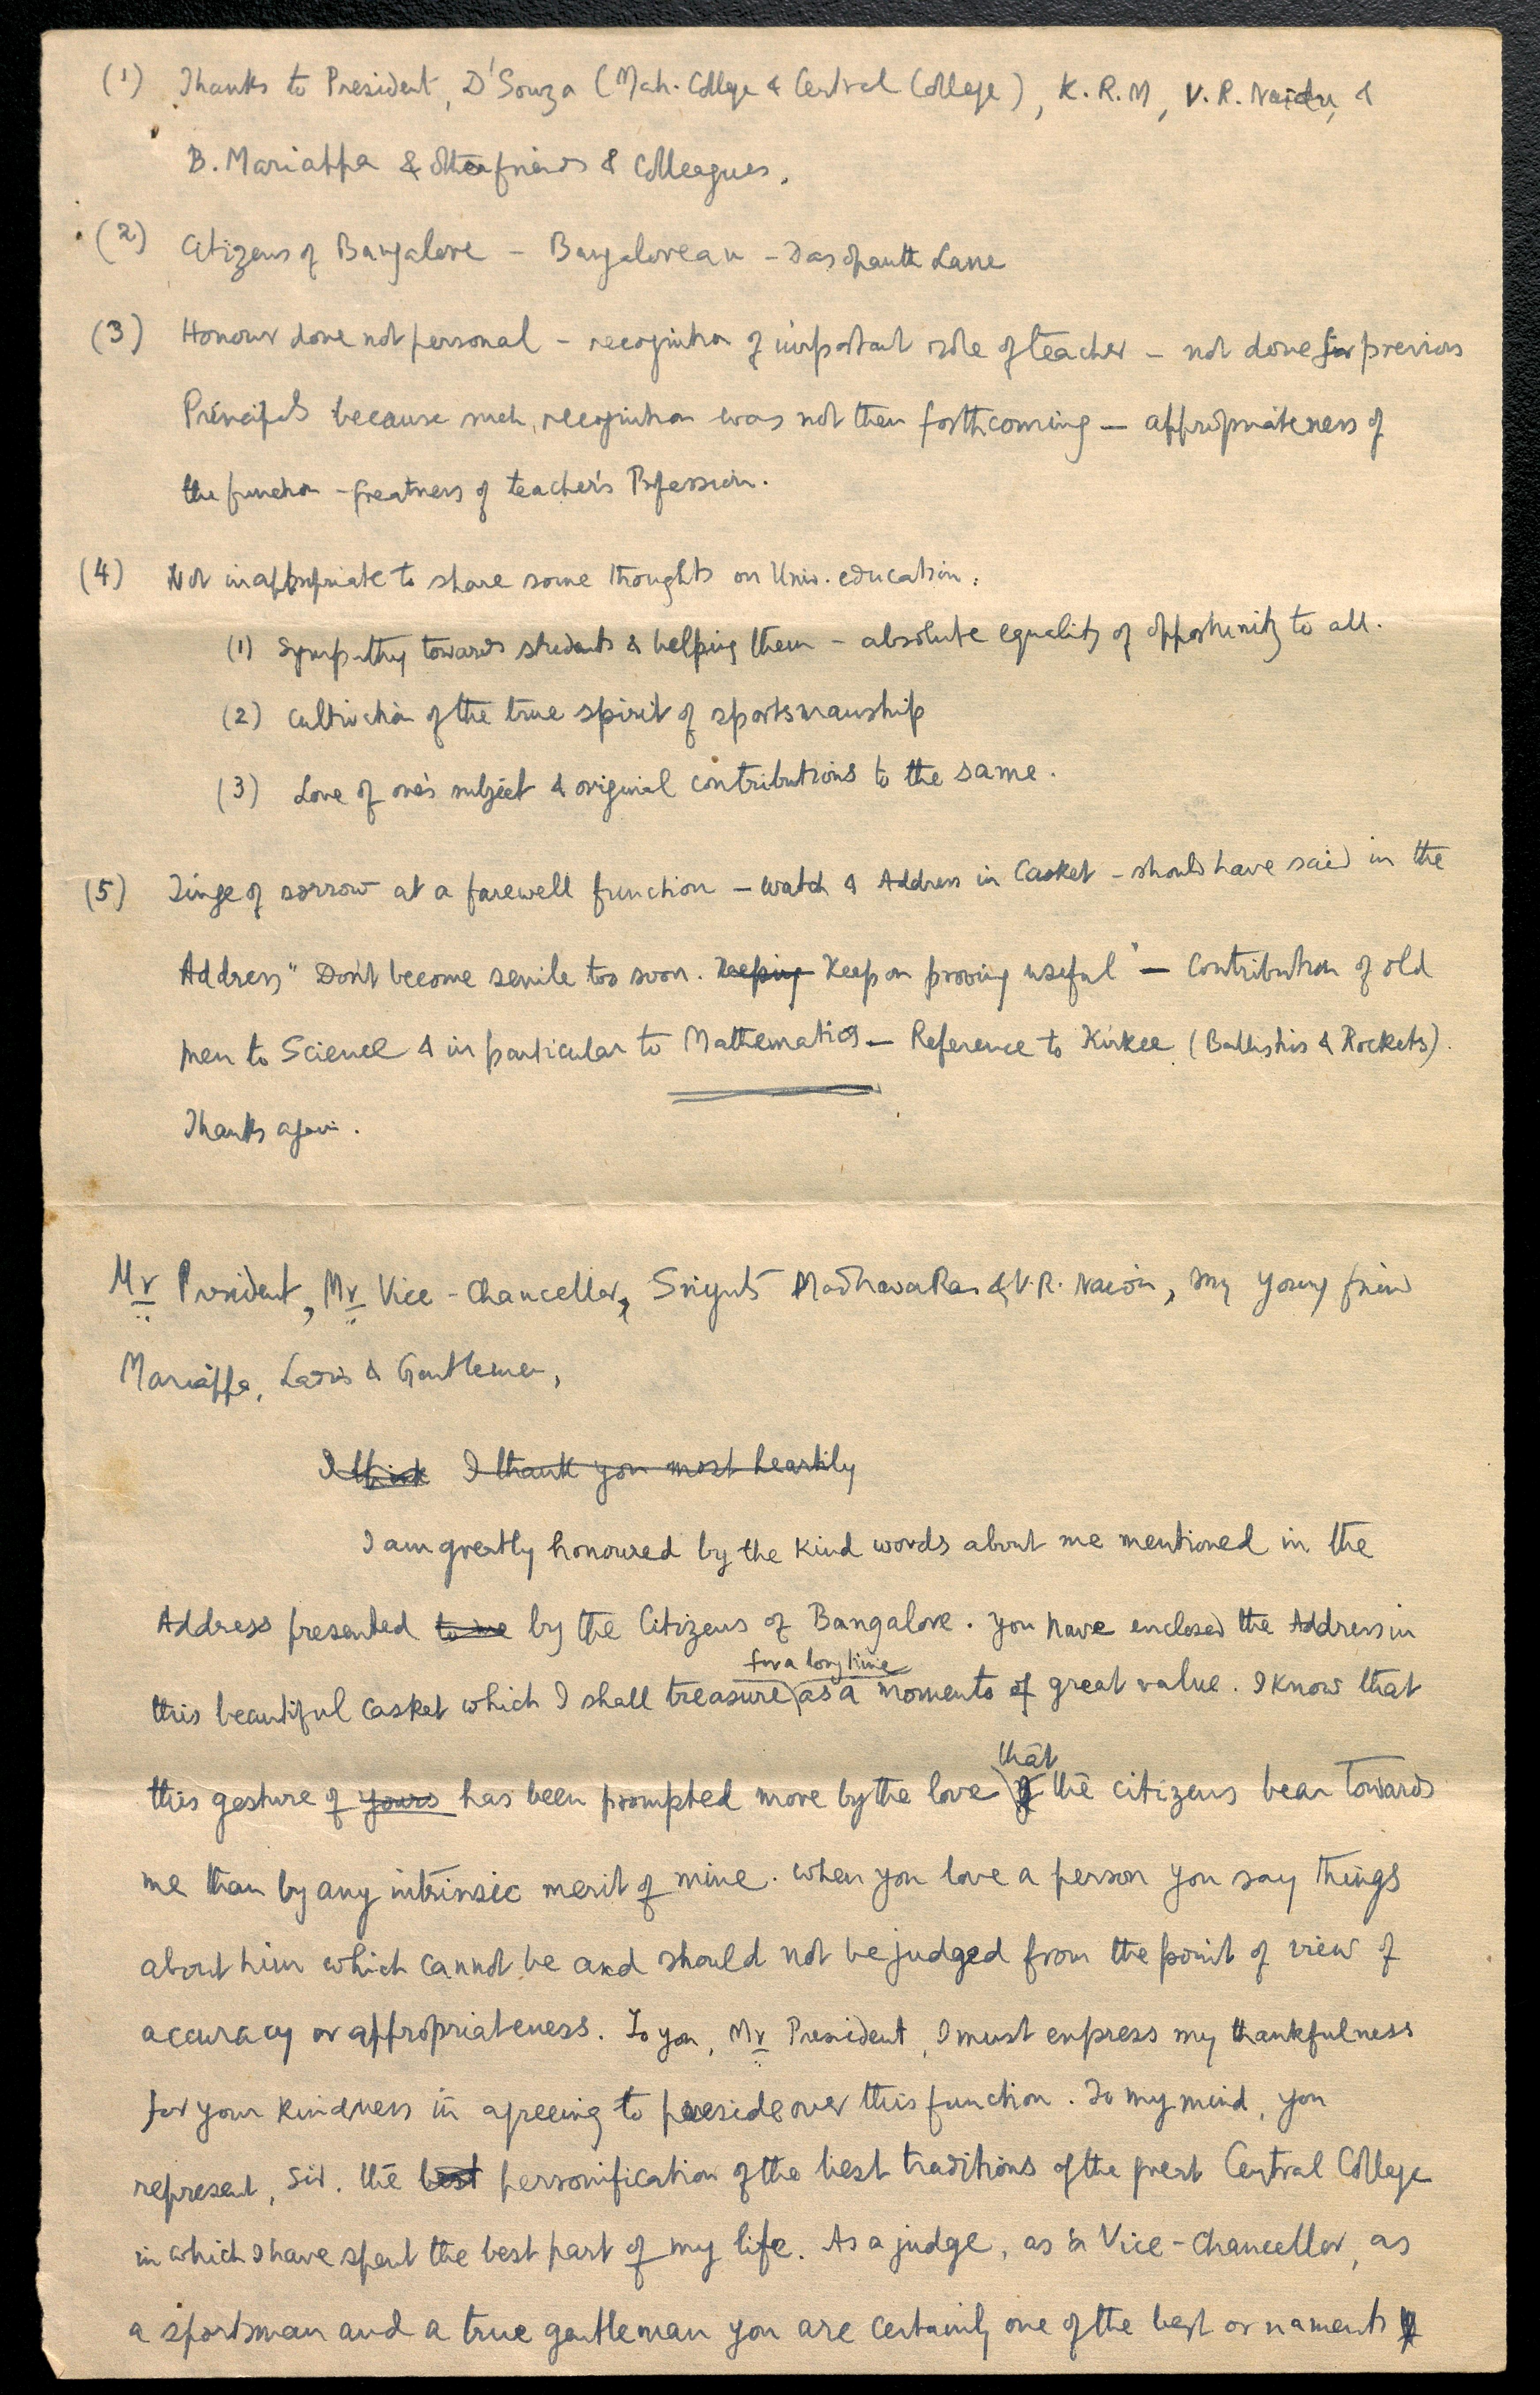 (1) Thanks to President, D'Souza (Mah. College & Central College), K.R.M, V.R. Naidu, &
B. Mariappa & other friends & colleagues.
(2) Citizens of Bangalore - Bangalorean - Dasopanth Lane
(3) Honour done not personal - recognition of important role of teacher - not done for previous
Principals because such recognition was not then forthcoming - appropriateness of
the function - greatness of teacher's Profession.
(4) Not inappropriate to share some thoughts on Univ. education.
(1) Sympathy towards students & helping them - absolute equality of opportunity to all.
(2) Cultivation of the true spirit of sportsmanship
(3) Love of one's subject & original contributions to the same.
(5) Tinge of sorrow at a farewell function - watch & Address in Casket - should have said in the
Address "Don't become senile too soon. Keeping Keep on proving useful" - Contribution of old
men to Science & in particular to Mathematics - Reference to Kirkee (Ballistics & Rockets).
Thanks again.
Mr President, Mr Vice-Chancellor, Sriyuts Madhava Rao & V.R. Naidu, my young friend
Mariappa, Ladies & Gentlemen,
I think I thank you most heartily
I am greatly honoured by the kind words about me mentioned in the
Address presented to me by the Citizens of Bangalore. You have enclosed the Address in
for a long time
this beautiful casket which I shall treasure as a momento of great value. I know that
that
this gesture of yours has been prompted more by the love of the citizens bear towards
me than by any intrinsic merit of mine. When you love a person you say things
about him which cannot be and should not be judged from the point of view of
accuracy or appropriateness. To you, Mr President, I must express my thankfulness
for your kindness in agreeing to preside over this function. To my mind, you
represent, Sir, the best personification of the best traditions of the great Central College
in which I have spent the best part of my life. As a judge, as a Vice-Chancellor, as
a sportsman and a true gentleman you are certainly one of the best ornaments